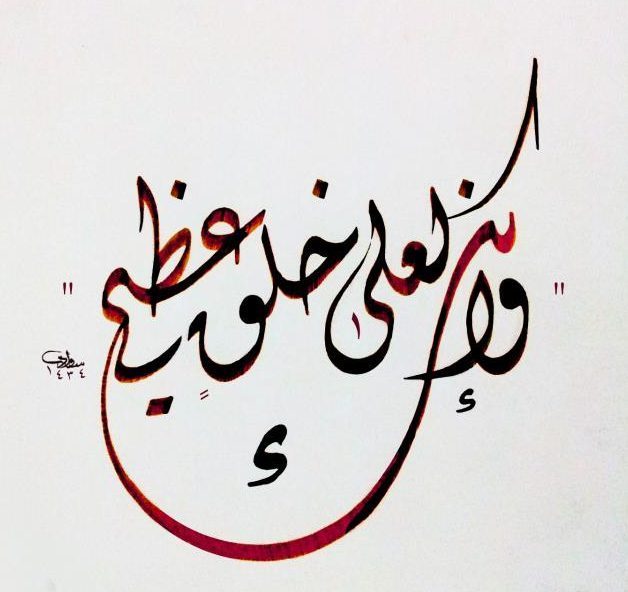 " وإنك لعلى خلقٍ عظيم "
١٤٣٤